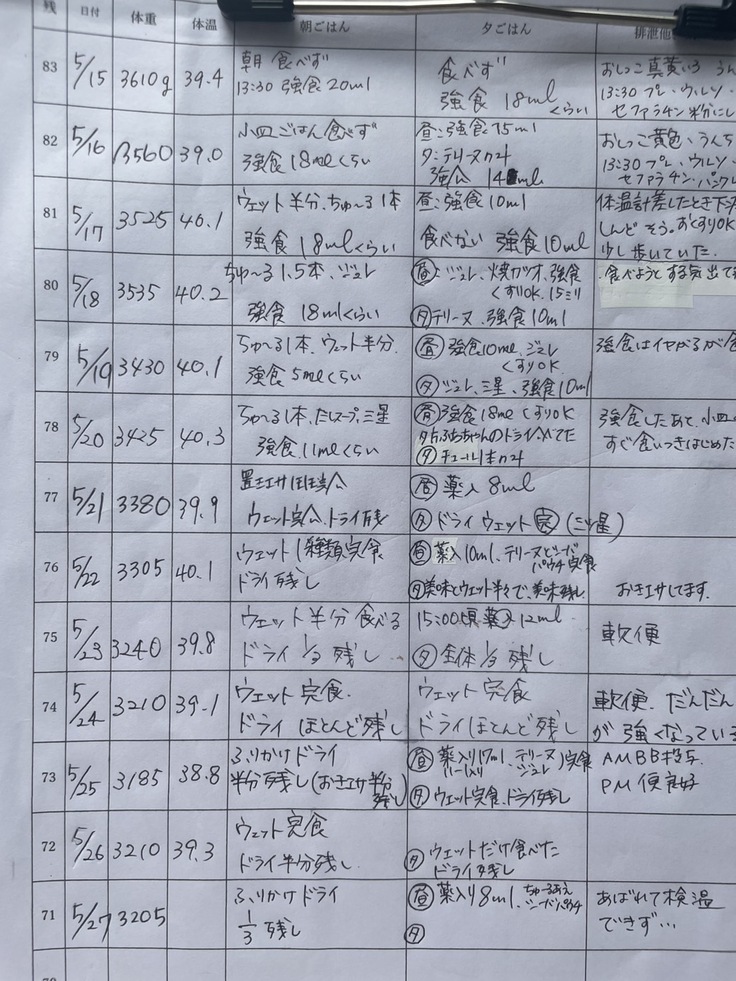 残 日付 体重 体温 朝ごはん 夕ごはん 排泄他
83 5/15 3610g 39.4
朝 食べず
13:30 強食 20ml
食べず
強食 18ml くらい
おしっこ真黄いろ うん
13:30 プレ・ウルソ・
セファラチン粉にし
82 5/16 3560 39.0
小皿ごはん食べず
強食 18mlくらい
昼:強食 15ml
夕:テリーヌ
強 14ml
おしっこ黄色・うんち
13:30 プレ・ウルソ・
セファラチン・パンクレ
81 5/17 3525 40.1
ウェット半分、ちゅ〜る1本
強食 18mlくらい
昼:強食 10ml
食べない 強食 10ml
体温計差したとき下
しんどそう。おくすりOK
少し歩いていた。
80 5/18 3535 40.2
ちゅ〜る1.5本、ジュレ
強食 18mlくらい
昼:ジュレ、焼カツオ、強食
くすりOK. 15ミリ
夕 テリーヌ、強食 10ml
・食べようとする気出て
79 5/19 3430 40.1
ちゅ〜る1本、ウェット半分.
強食 5mlくらい
昼 強食10ml、ジュレ
くすりOK
夕 ジュレ、三星、強食 10ml
強食はイヤがるが食
78 5/20 3425 40.3
ちゅ〜る1本、だしスープ、三星
強食 11mlくらい
昼 強食18ml くすりOK
ちゃんのドライ
夕 チュール1本
強食したあと、小皿
すぐ食いつきはじめた
77 5/21 3380 39.9
置きエサほぼ
ウェット完 、ドライ残
昼 薬入 8ml
夕 ドライ ウェット 完 (三ツ星)
76 5/22 3305 40.1
ウェット1種類完食
ドライ残し
昼 薬入10ml、テリーヌとシーバ
パウチ完食
夕 美味とウェット半々で、美味残し
おきエサしてます.
75 5/23 3240 39.8
ウェット半分 食べる
ドライ 1/3 残し
15:00頃 薬入 12ml
夕 全体 1/3 残し
軟便
74 5/24 3210 39.1
ウェット完食.
ドライ ほとんど残し
ウェット完食
ドライほとんど残し
軟便. だんだん
が 強くなっている
73 5/25 3185 38.8
ふりかけドライ
半分残し(おきエサ半分
残し)
昼 薬入り17ml、テリーヌ 完食
ジュレ
夕 ウェット完食、ドライ残し
AMBB投与.
PM 便良好
72 5/26 3210 39.3
ウェット完食
ドライ半分残し.
夕 ウェットだけ食べた
ドライ残し
71 5/27 3205
ふりかけドライ
1/3 残し
昼 薬入り8ml、ちゅ〜るあえ
シーバパウチ
夕
あばれて検温
できず…